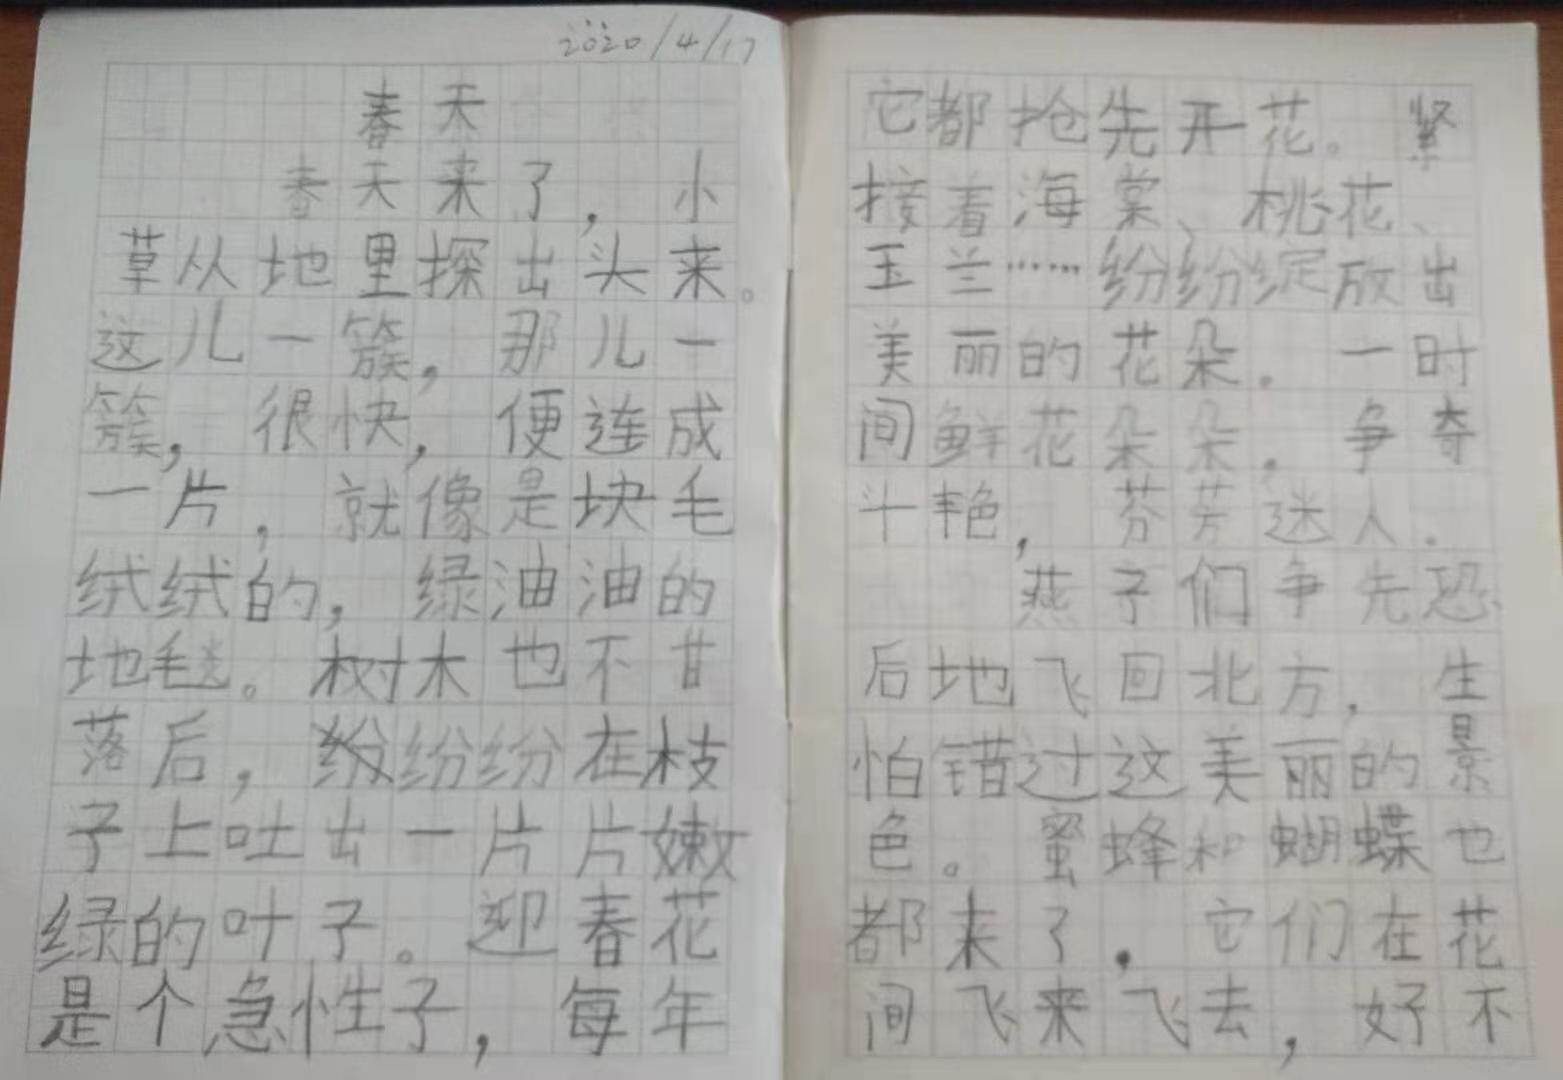 2020/4/17
春天
春天来了，小
草从地里探出头来。
这儿一簇，那儿一
簇，很快，便连成
一片，就像是块毛
绒绒的，绿油油的
地毯。树木也不甘
落后，纷纷纷在枝
子上吐出一片片嫩
绿的叶子。迎春花
是个急性子，每年
它都抢先开花。紧
接着海棠、桃花、
玉兰……纷纷绽放出
美丽的花朵。一时
间鲜花朵朵。争夺
斗艳，芬芳迷人.
燕子们争先恐
后地飞回北方，生
怕错过这美丽的景
色。蜜蜂和蝴蝶也
都来了.它们在花
间飞来飞去，好不